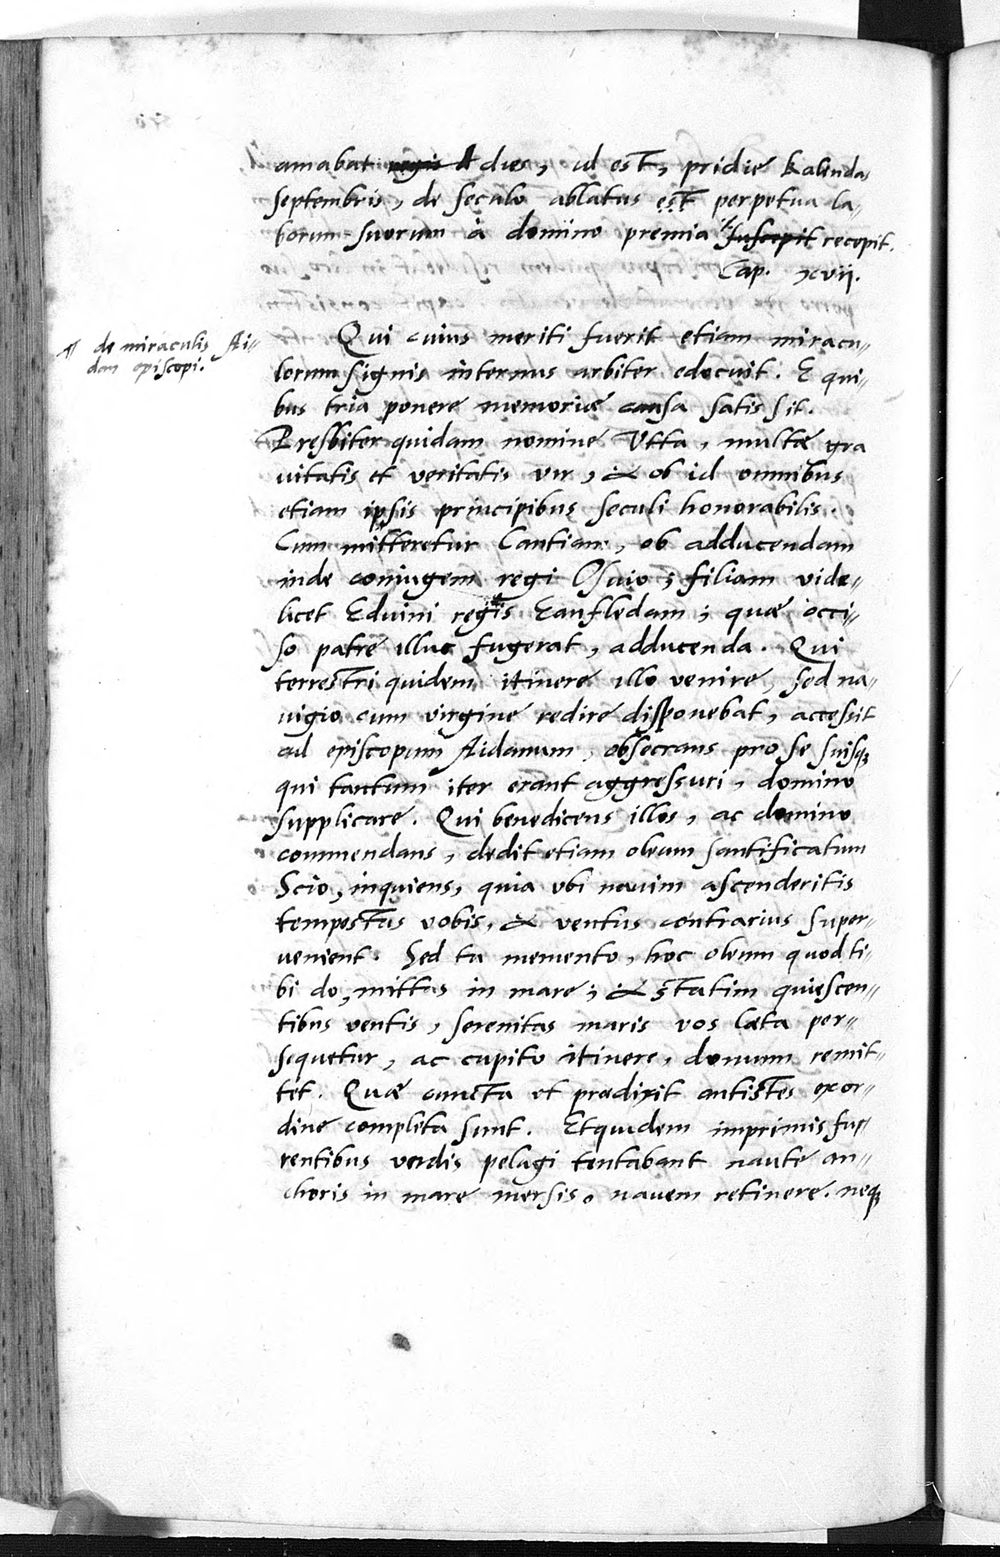 amabat regis dies, id est, pridie Kalendas
septembris, de seculo ablatus est perpetua la-
borum suorum à domino premia suscepit recepit.
Cap. xvii.
de miraculis Ai-
dan episcopi.
Qui cuius meriti fuerit etiam miracu-
lorum signis internus arbiter edocuit. E qui-
bus tria ponere memoriæ causa satis sit.
Presbiter quidam nomine Utta, multæ gra
uitatis et veritatis vir, & ob id omnibus
etiam ipsis principibus seculi honorabilis.
Cum mitteretur Cantiam, ob adducendam
inde coniugem regi Osuio; filiam vide-
licet Eduini regis Eanfledam; quæ occi-
so patre illuc fugerat, adducenda. Qui
terrestri quidem itinere illo venire, sed na-
uigio cum virgine redire disponebat, accessit
ad episcopum Aidanum, obsecrans pro se suisq;
qui tantum iter erant aggressuri, domino
supplicare. Qui benedicens illos, ac domino
commendans, dedit etiam oleum santificatum
Scio, inquiens, quia vbi nauim ascenderitis
tempestas vobis, & ventus contrarius super-
uenient. Sed tu memento, hoc oleum quod ti-
bi do, mittas in mare; & statim quiescen-
tibus ventis, serenitas maris vos læta per-
sequetur, ac cupito itinere, domum remit-
tet. Quæ cuncta vt prædixit antistes ex or-
dine completa sunt. Et quidem imprimis fur-
rentibus vndis pelagi tentabant naute an-
choris in mare mersis. nauem retinere. neq;